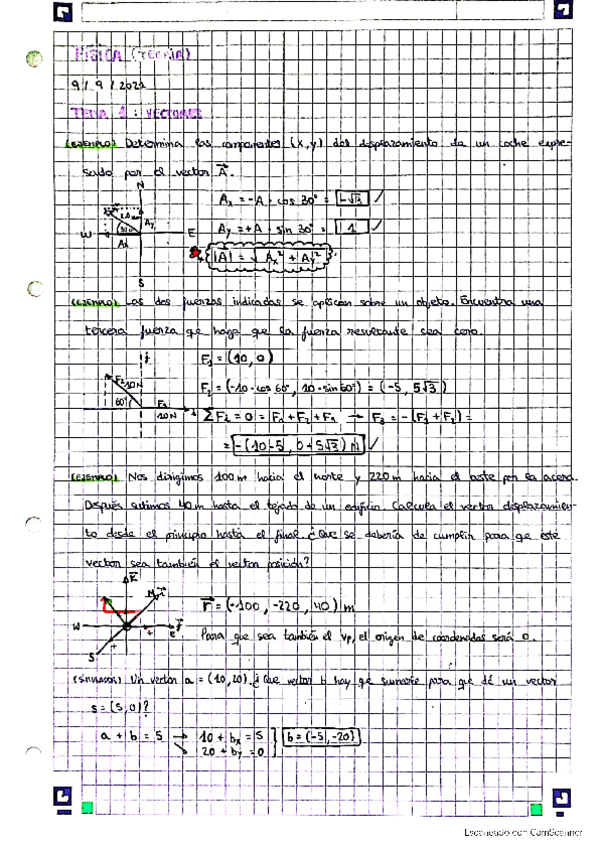 FÍSICA (TEORÍA)
9 / 9 / 2021
TEMA 1 : VECTORES
(EJEMPLO) Determina las componentes (x,y) del desplazamiento de un coche expre-
sado por el vector A⃗.
N
Ax = -A · cos 30° = -√3 ✓
W E Ay = +A · sin 30° = 1 ✓
30°
Ay
Ax
|A⃗| = √Ax² + Ay²
S
(EJEMPLO) Las dos fuerzas indicadas se aplican sobre un objeto. Encuentra una
tercera fuerza qe haga que la fuerza resultante sea cero.
j F₁ = (10, 0)
F₂ 10N F₂ = (-10·cos 60°, 10·sin 60°) = (-5, 5√3)
60° F₁ 10N i ΣFi = 0 = F₁ + F₂ + F₃ → F₃ = -(F₁ + F₂) =
= -(10-5, 0+5√3) N ✓
(EJEMPLO) Nos dirigimos 100m hacia el norte y 220m hacia el oeste por la acera.
Después subimos 40m hasta el tejado de un edificio. Calcula el vector desplazamien-
to desde el principio hasta el final. ¿Que se debería de cumplir para qe este
vector sea también el vector posición?
K⃗
W E r⃗ = (-100, -220, 40) m
S Para que sea también el vp, el origen de coordenadas será 0.
Un vector a = (10,20). ¿Que vector b hay qe sumarle para qe dé un vector
s = (5,0)?
a + b = s → 10 + bx = 5
20 + by = 0 b = (-5,-20)
Escaneado con CamScanner